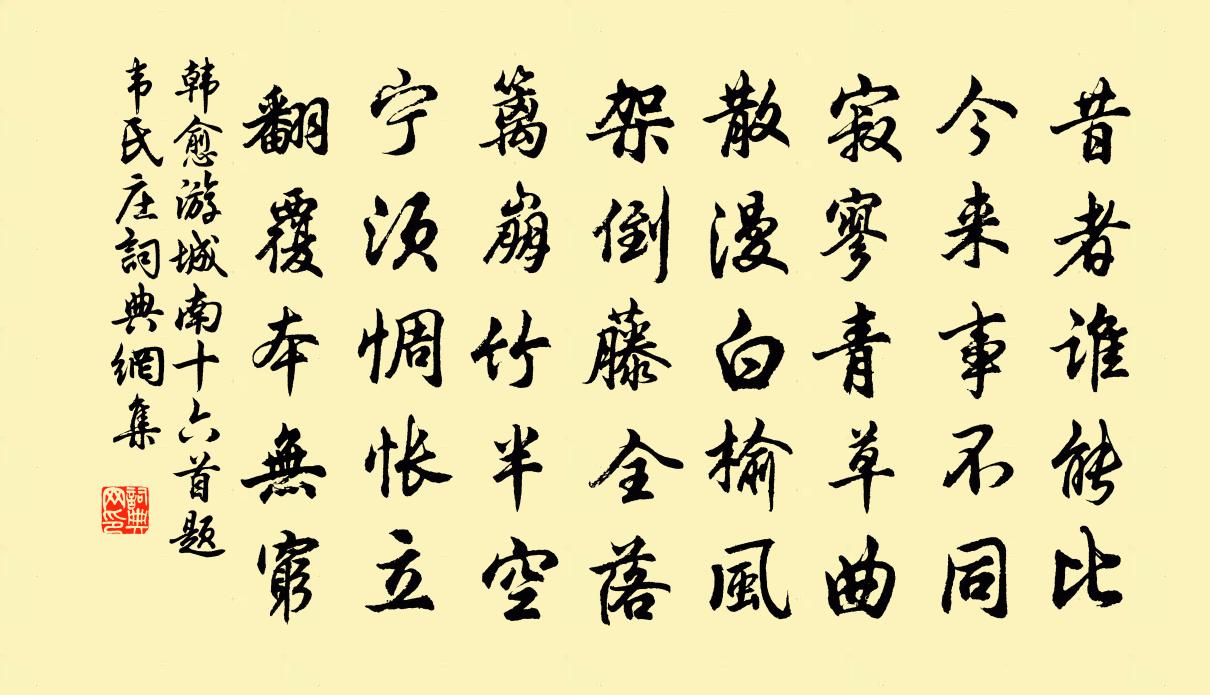 昔者谁能比
今来事不同
寂寥青草曲
散漫白榆風
架倒藤全落
篱崩竹半空
宁须惆怅立
翻覆本無窮
韩愈游城南十六首题
韦氏庄詞典網集
詞典网印